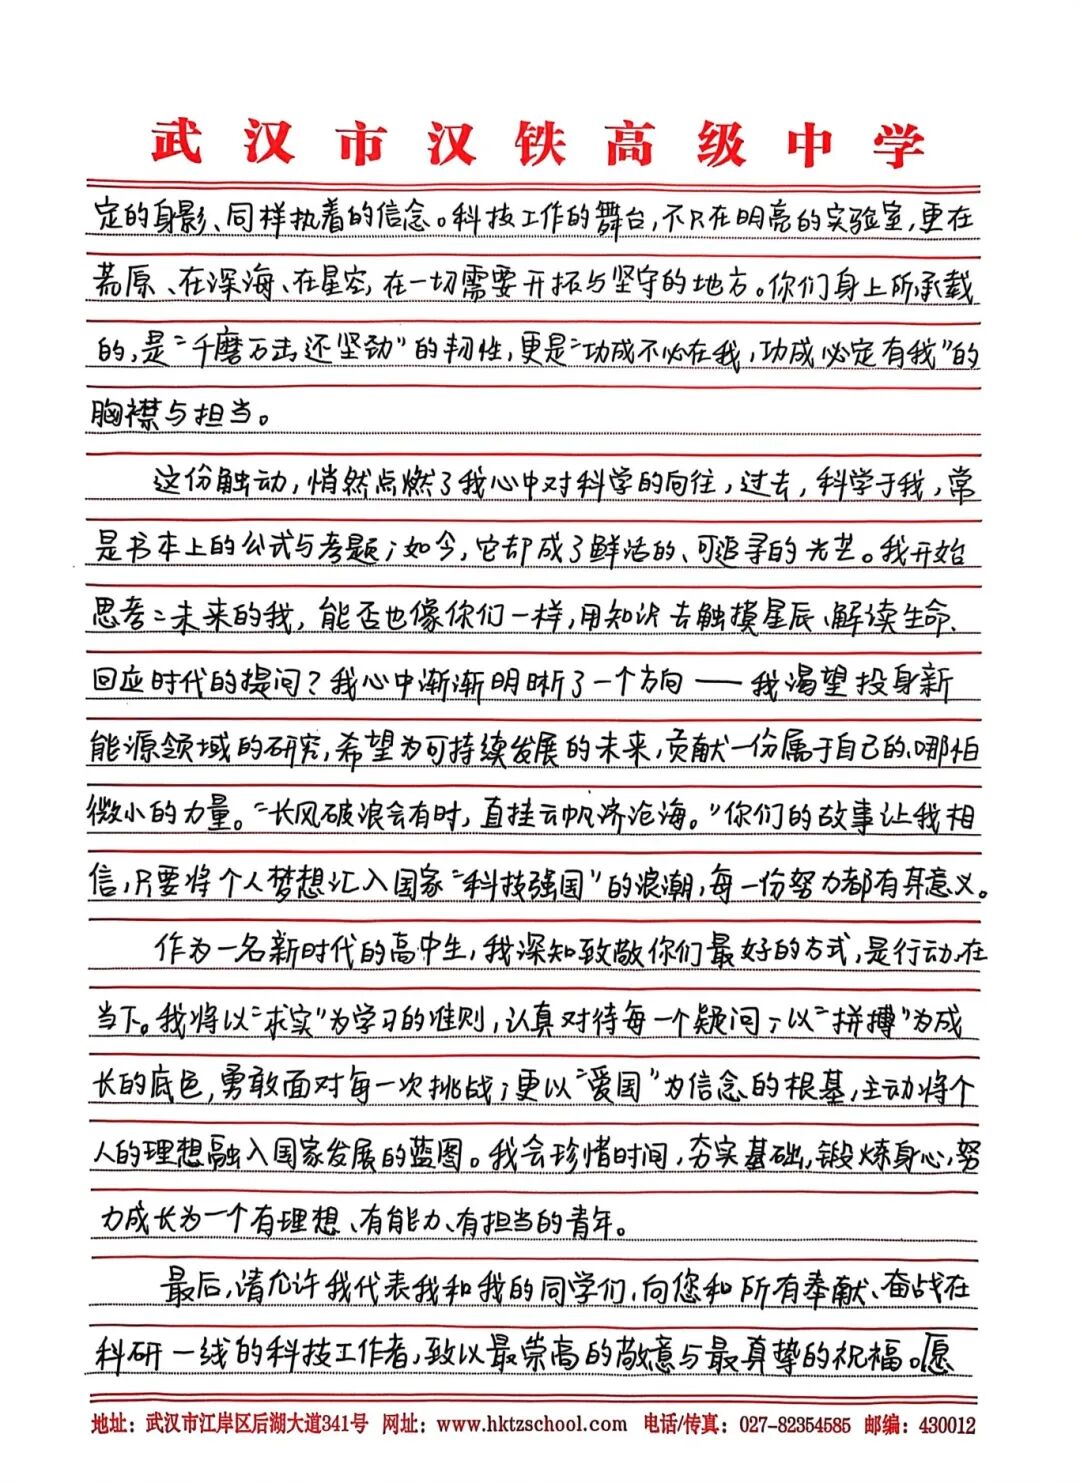 武汉市汉铁高级中学
定的身影、同样执着的信念。科技工作的舞台,不只在明亮的实验室,更在
荒原、在深海、在星空,在一切需要开拓与坚守的地方。你们身上所承载
的,是“千磨万击还坚劲”的韧性,更是“功成不必在我,功成必定有我”的
胸襟与担当。
这份触动,悄然点燃了我心中对科学的向往,过去,科学于我,常
是书本上的公式与考题;如今,它却成了鲜活的、可追寻的光芒。我开始
思考:未来的我,能否也像你们一样,用知识去触摸星辰、解读生命、
回应时代的提问?我心中渐渐明晰了一个方向——我渴望投身新
能源领域的研究,希望为可持续发展的未来,贡献一份属于自己的、哪怕
微小的力量。“长风破浪会有时,直挂云帆济沧海。”你们的故事让我相
信,只要将个人梦想汇入国家“科技强国”的浪潮,每一份努力都有其意义。
作为一名新时代的高中生,我深知致敬你们最好的方式,是行动在
当下。我将以“求实”为学习的准则,认真对待每一个疑问;以“拼搏”为成
长的底色,勇敢面对每一次挑战;更以“爱国”为信念的根基,主动将个
人的理想融入国家发展的蓝图。我会珍惜时间,夯实基础,锻炼身心,努
力成长为一个有理想、有能力、有担当的青年。
最后,请允许我代表我和我的同学们,向您和所有奉献、奋战在
科研一线的科技工作者,致以最崇高的敬意与最真挚的祝福。愿
地址:武汉市江岸区后湖大道341号 网址:www.hktzschool.com 电话/传真:027-82354585 邮编:430012